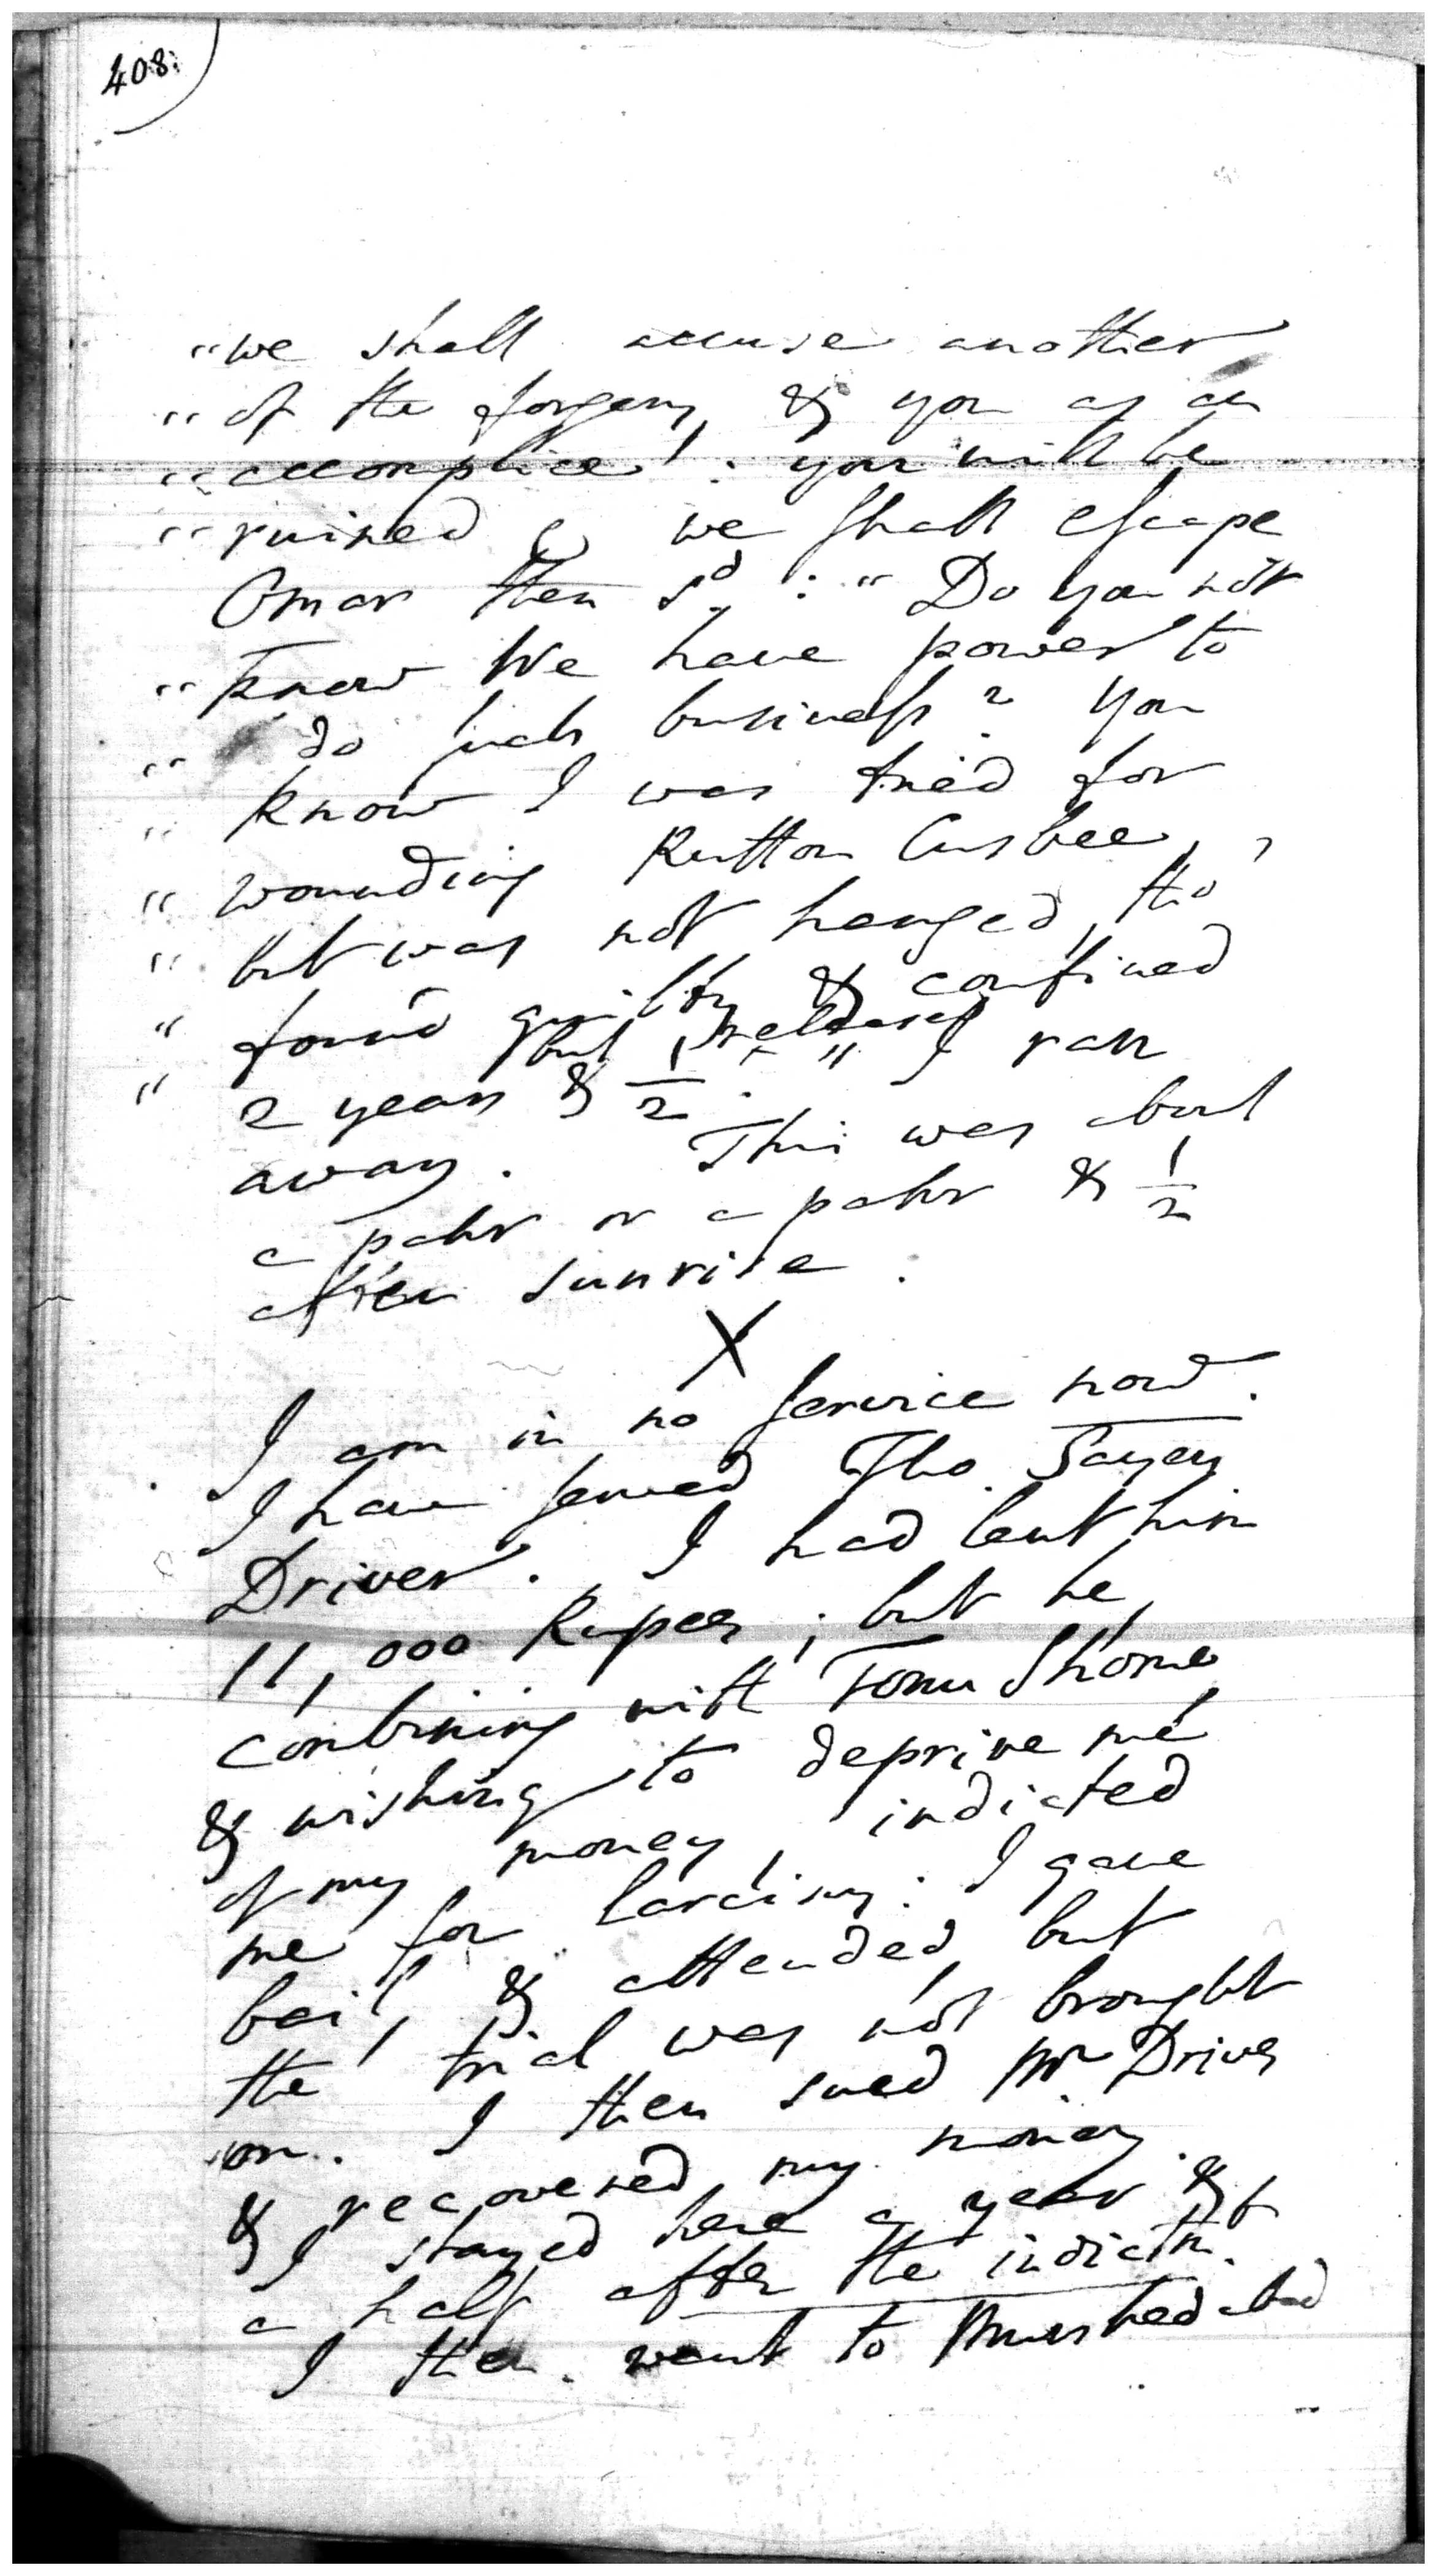 408.
"we shall accuse another
"of the forgery, & you as an
"accomplice: you will be
"ruined & we shall escape
Omar then sd: "Do you not
"know We have power to
"do such business? You
"know I was tried for
"wounding Rutton Cusbee,
"but was not hanged, tho'
"found guilty & confined
but released
"2 years & 1/2." I ran
away. This was about
a pahr or a pahr & 1/2
after sunrise.
X
I am in no service now.
I have served Tho. Sayer
Driver. I had lent him
11,000 Rupees; but he,
combining with Tonu Shome,
& wishing to deprive me
of my money, indicted
me for larciny: I gave
bail, & attended, but
the trial was not brought
on. I then sued Mr Driver
& recovered my money.
I stayed here a year &
a half after the indictmt.
I then went to Mushedabad